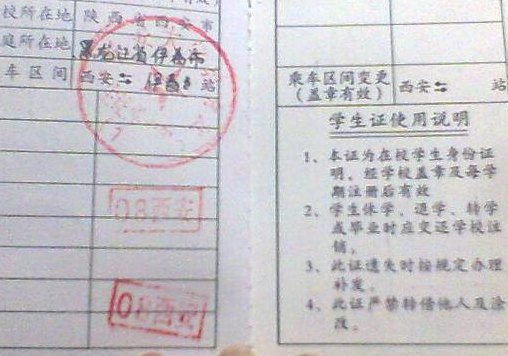 校所在地 陕西省西安市
庭所在地 黑龙江省伊春市
车区间 西安⇆伊春 站
08西安
08西安
乘车区间变更
(盖章有效) 西安⇆ 站
学生证使用说明
1、本证为在校学生身份证
明，经学校盖章及每学
期注册后有效
2、学生休学、退学、转学
或毕业时应交还学校注
销。
3、此证遗失时按规定办理
补发。
4、此证严禁转借他人及涂
改。